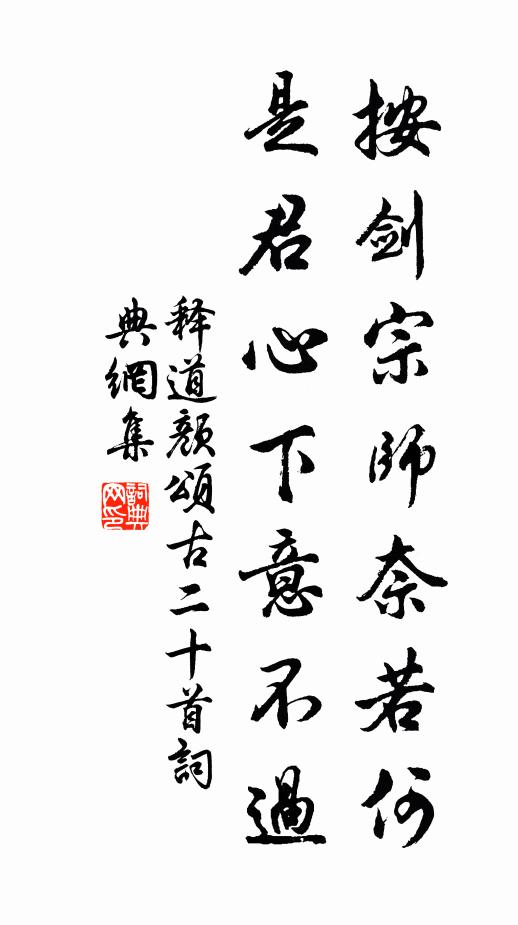 按剑宗師奈若何
是君心下意不過
释道顏頌古二十首詞
典網集
詞典网印